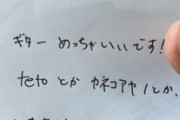 ギター めっちゃいいです!
teto とか カネコアヤノとか、